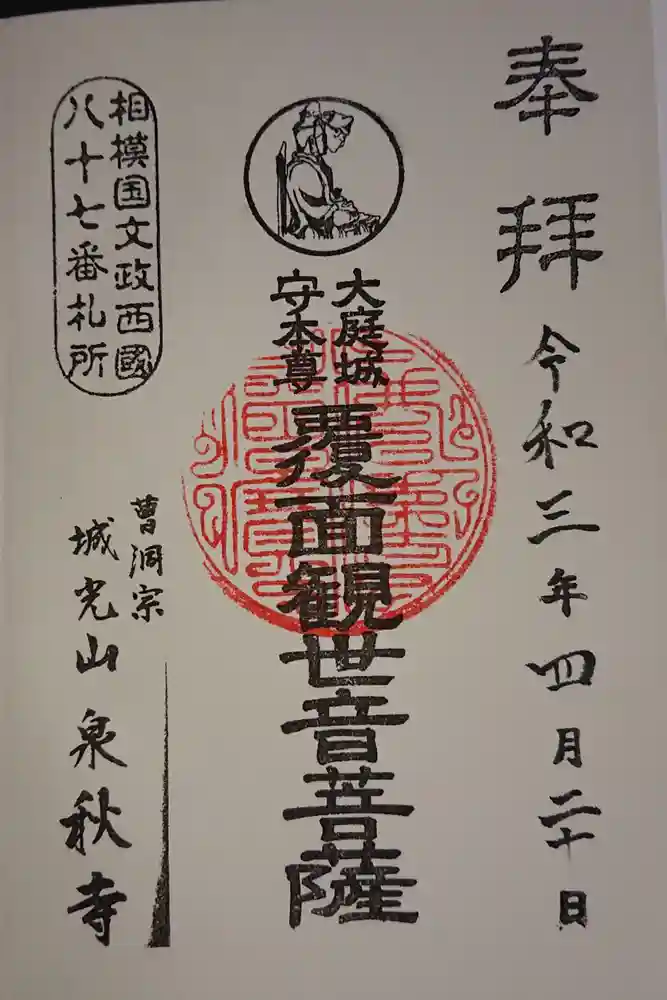 奉拝
令和三年四月二十日
大庭城
守本尊
覆面観世音菩薩
相模国文政西國
八十七番札所
曹洞宗
城光山 泉秋寺